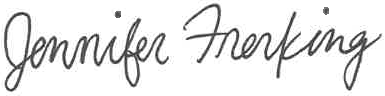 Jennifer Frerking